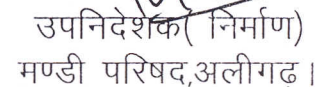 उपनिदेशक( निर्माण)
मण्डी परिषद,अलीगढ़।